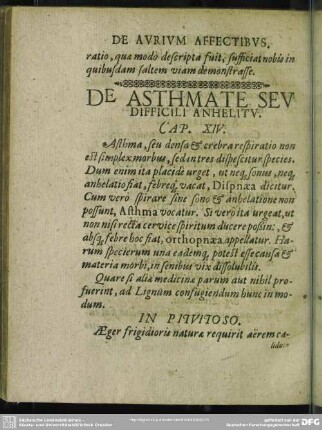 DE AVRIVM AFFECTIBVS,
ratio, qua modò descripta fuit, sufficiat nobis in
quibusdam saltem viam demonstrasse.
DE ASTHMATE SEV
DIFFICILI ANHELITV.
CAP. XIV.
Asthma, seu densa & crebra respiratio non
est simplex morbus, sed in tres dispescitur species.
Dum enim ita placide urget, ut neq, sonus, neq,
anhelatio fiat, febreq, vacat, Dispnæa dicitur.
Cum vero spirare sine sono & anhelatione non
possunt, Asthma vocatur. Si verò ita urgeat, ut
non nisi recta cervice spiritum ducere poßin: &
absq, febre hoc fiat, orthopnæa appellatur. Ha-
rum specierum una eademq, potest esse causa &
materia morbi, in senibus vix dissolubilis.
Quare si alia medicina parum aut nihil pro-
fuerint, ad Lignum confugiendum hunc in mo-
dum.
IN PITVITOSO.
Æger frigidioris naturæ requirit aërem ca-
lidio-